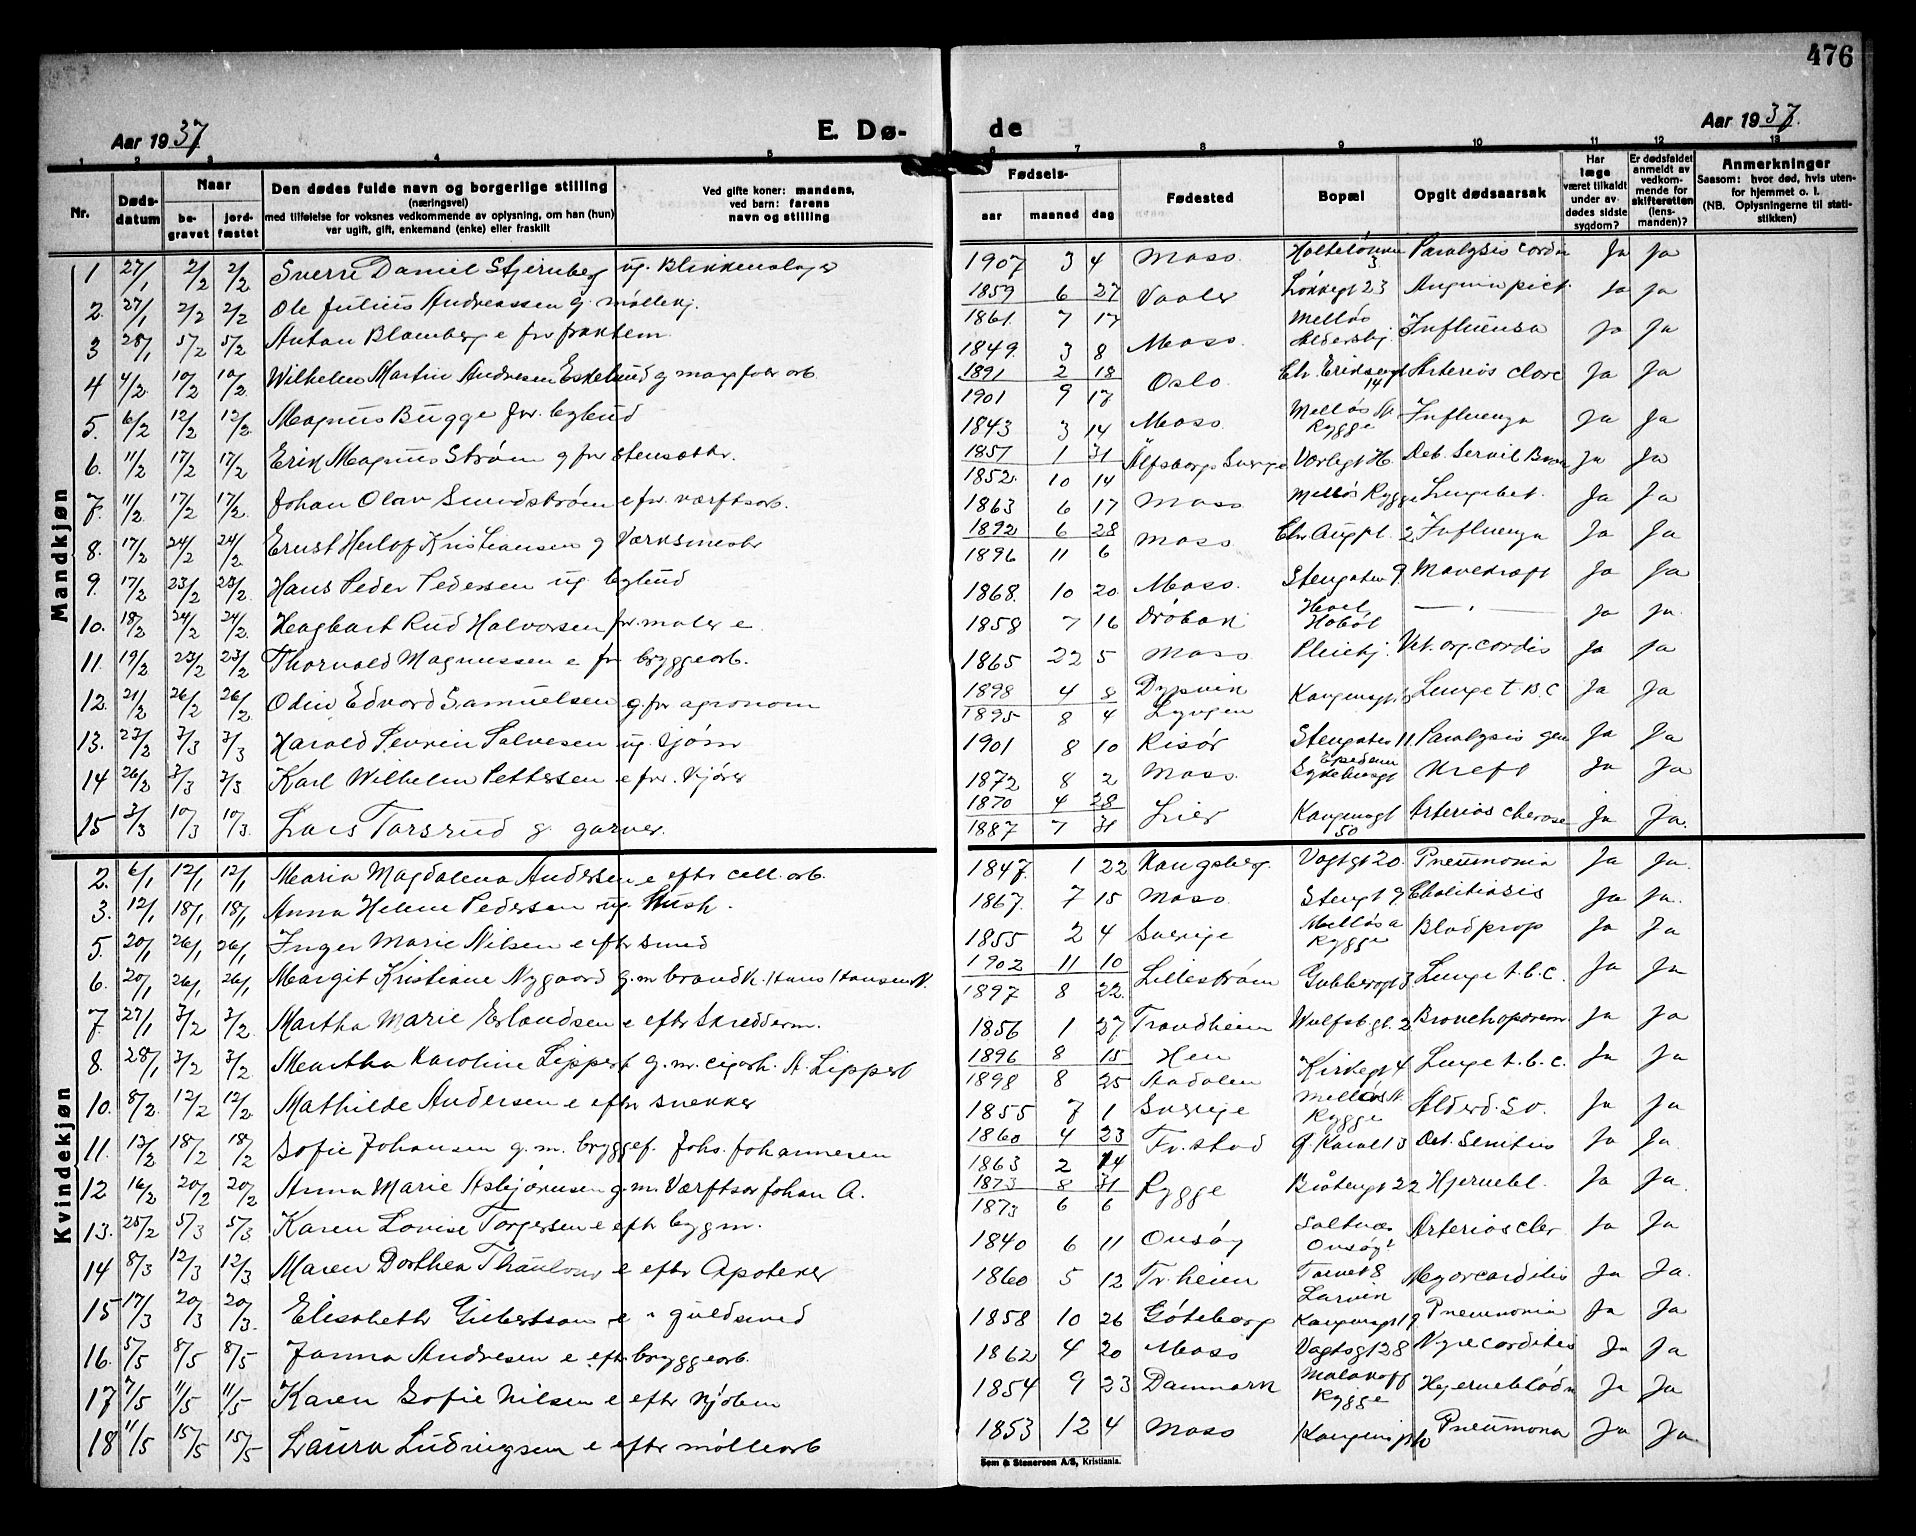 476
Aar 1937
E. Dø-
de
Aar 1937.
1 2 3 4 5 6 7 8 9 10 11 12 13
Nr.
Døds-datum
Naar
be-gravet
jord-fæstet
Den dødes fulde navn og borgerlige stilling
(næringsvei)
med tilføielse for voksnes vedkommende av oplysning, om han (hun)
var ugift, gift, enkemand (enke) eller fraskilt
Ved gifte koner: mandens,
ved barn: farens
navn og stilling
Fødsels-
aar
maaned
dag
Fødested
Bopæl
Opgit dødsaarsak
Har læge været tilkaldt under av-dødes sidste sygdom?
Er dødsfaldet anmeldt av vedkom-mende for skifteretten (lens-manden)?
Anmerkninger
Saasom: hvor død, hvis uten-for hjemmet o. l.
(NB. Oplysningerne til stati-stikken)
Mandkjøn
1 27/1 2/2 2/2 Sverre Daniel Stjernberg ug. Blikkenslager 1907 3 4 Moss 3 Paralysis cordis Ja Ja
2. 27/1 2/2 2/2 Ole Julius Andreassen g. møllearb. 1859 6 27 Vaaler Løkkegt 23 Angina pict. Ja Ja
1861. 7 17
3 28/1 5/2 5/2 Anton Blomberg e fv. 1849. 3 8 Moss. Melløs Aldershj. Influensa Ja Ja
4 4/2 10/2 10/2 Wilhelm Martin Andresen Eskelund g 1891 2 18 Oslo. Chr. Eriksensgt 14 Arterios clero Ja Ja
1901 9 17
5. 6/2 12/2 12/2 Magnus Bugge fv. bybud 1843 3 14 Moss. Melløs Rygge Influenza Ja Ja
6. 11/2 17/2 17/2 Erik Magnus Strøm g fv stensætter. 1857 1 31 Älfsborgs Sverige Vårlegt Ja Ja
1852. 10 14
7. 11/2 17/2 17/2. Johan Olav Sundstrøm e fv. værftsarb. 1863 6 17 Moss. Melløs Rygge Lungebet. Ja Ja
8. 17/2 24/2 24/2 Ernst Herlof Kristiansen g Verksmester 1892 6 28 Moss. Chr Augpl. 2 Influenza Ja Ja
1896 11 6
9. 17/2 23/2 23/2. Hans Peder Pedersen ug. bybud 1868. 10 20. Moss. Stengaten 9 Mavekræft Ja Ja
10. 18/2 24/2 24/2. Hagbart Rud Halvorsen fv. maler e. 1858 7 16 Drøbak Hobøl Ja Ja.
11. 19/2 23/2 23/2 Thorvald Magnussen e fv bryggearb. 1865 22 5 Moss Pleiehj. Vit. org. cordis Ja Ja
12. 21/2 26/2 26/2. Odin Edvard Samuelsen g. fv agronom 1898 4 8 Dypvik Kongensgt Lunge t. B. C Ja Ja
1895 8 4 Lyngen
13. 27/2 3/3 3/3 Harald Severin Salvesen ug. sjøm 1901 8 10 Risør Stengaten 11. Paralysis gen Ja Ja
14 26/2 3/3 3/3 Karl Wilhelm Pettersen e fv. kjører 1872 8 2 Moss. Epidem Sykehusgt Kreft Ja Ja
15 3/3 10/3 10/3. Lars Torsrud g. garver. 1870 4 28 Lier Kongensgt 50 Arterios cherose Ja Ja.
1887 7 31
Kvindekjøn
2. 6/1 12/1 12/1 Maria Magdalena Andersen e efter cell. arb. 1847. 1 22 Kongsberg. Vogtsgt 20. Pneumonia Ja Ja.
3. 12/1 18/1 18/1 Anna Helene Pedersen ug. Hush. 1867. 7 15 Moss. Stengt 9 Cholitiasis Ja Ja.
5. 20/1 26/1 26/1 Inger Marie Nilsen e efter smed 1855 2 4 Sverige Melløs Rygge Blodprop Ja Ja
6. 20/1 26/1 26/1 Margit Kristiane Nygaard g. m brandk. Hans Hansen N. 1902 11 10 Lillestrøm Gubberogt 3 Lunge t. b. c. Ja Ja
1897 8 22.
7. 27/1 3/2 3/2. Martha Marie Erlandsen e efter Skredderm. 1856 1 27 Trondheim Wulfsb.gt. 2 Bronchopnevm Ja Ja
8. 28/1 3/2 3/2. Martha Karoline Lippert g. m. cigarh. A. Lippert 1896 8 15 Hen Kirkegt 4 Lunge t. b. c. Ja Ja
1898 8 25 Aadalen
10. 8/2. 12/2 12/2. Mathilde Andersen e efter snekker 1855 7 1 Sverige Melløs Rygge Alderd. Sv. Ja Ja
11. 13/2 18/2 18/2 Sofie Johansen g. m. bryggef. Johs. Johannesen 1860 4 23 Fr.stad Det. Senitus Ja Ja.
1863 2 14
12 16/2 20/2 20/2 Anna Marie Asbjørnsen g. m. Værftsar Johan A. 1873 8 31 Rygge Båtengt 22 Hjernebl. Ja Ja.
1873 6 6
13. 25/2 5/3 5/3. Karen Lovise Torgersen e efter bygm. 1840 6 11 Onsøy Saltnæs Onsøy Arterioscler Ja Ja
14 8/3 12/3 12/3. Maren Dorthea Thaulow e efter Apoteker 1860 5 12 Tr.heim Torvet 8 Larvik Myorcarditis Ja Ja.
15 17/3 20/3 20/3. Elisabeth Gilbertson e " guldsmed 1858 10 26 Göteborg Kongensgt 19 Pneumonia Ja Ja
16. 5/5 8/5 8/5 Janna Andresen e eftr bryggearb. 1862 4 20 Moss Vogtsgt 28 Myrecorditis Ja Ja
17 7/5 11/5 11/5 Karen Sofie Nilsen e efter kjøbm 1854 9 23 Danmark Malakoff Rygge Hjerneblødn Ja Ja
18 11/5 15/5 15/5 Laura Ludvigsen e efter møllearb 1853 12 4 Moss Kongensgt 10 Pneumona Ja Ja.
Sem & Stenersen A/S, Kristiania.